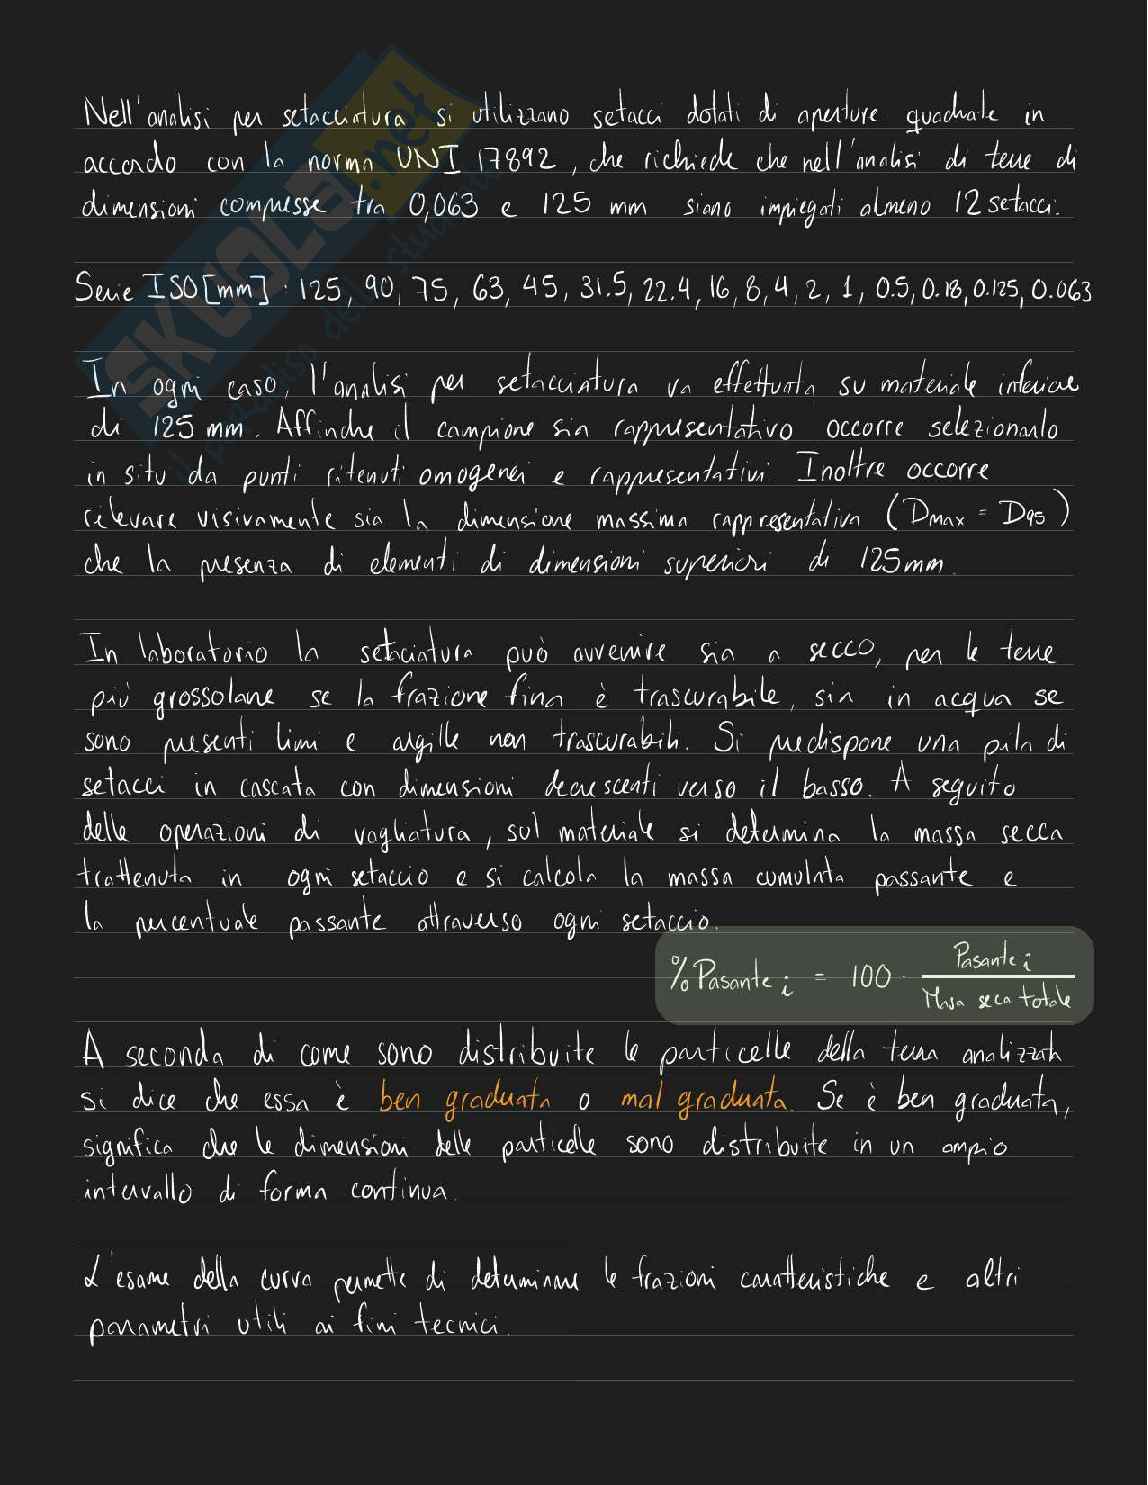 Nell'analisi per setacciatura si utilizzano setacci dotati di aperture quadrate in
accordo con la norma UNI 17892, che richiede che nell'analisi di terre di
dimensioni compresse tra 0,063 e 125 mm siano impiegati almeno 12 setacci.
Serie ISO [mm] : 125, 90, 75, 63, 45, 31.5, 22.4, 16, 8, 4, 2, 1, 0.5, 0.18, 0.125, 0.063
In ogni caso, l'analisi per setacciatura va effettuata su materiale inferiore
di 125 mm. Affinché il campione sia rappresentativo occorre selezionarlo
in situ da punti ritenuti omogenei e rappresentativi Inoltre occorre
rilevare visivamente sia la dimensione massima rappresentativa (Dmax = D95)
che la presenza di elementi di dimensioni superiori di 125mm.
In laboratorio la setacciatura può avvenire sia a secco, per le terre
più grossolane se la frazione fina è trascurabile, sia in acqua se
sono presenti limi e argille non trascurabili. Si predispone una pila di
setacci in cascata con dimensioni decrescenti verso il basso. A seguito
delle operazioni di vagliatura, sul materiale si determina la massa secca
trattenuta in ogni setaccio e si calcola la massa cumulata passante e
la percentuale passante attraverso ogni setaccio.
%Pasante i = 100 · Pasante i / Massa seca totale
A seconda di come sono distribuite le particelle della terra analizzata
si dice che essa è ben graduata o mal graduata. Se è ben graduata,
significa che le dimensioni delle particelle sono distribuite in un ampio
intervallo di forma continua.
L'esame della curva permette di determinare le frazioni caratteristiche e altri
parametri utili ai fini tecnici.
SKUOLA.net
il paradiso dello studente